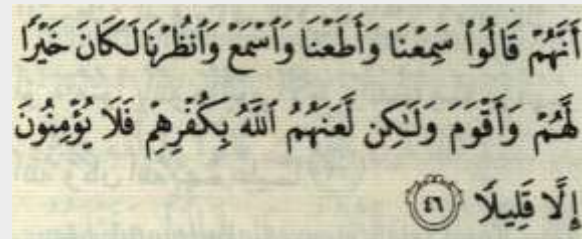 أَنَّهُمْ قَالُوا۟ سَمِعْنَا وَأَطَعْنَا وَٱسْمَعْ وَٱنظُرْنَا لَكَانَ خَيْرًا
لَّهُمْ وَأَقْوَمَ وَلَـٰكِن لَّعَنَهُمُ ٱللَّهُ بِكُفْرِهِمْ فَلَا يُؤْمِنُونَ
إِلَّا قَلِيلًا ٤٦